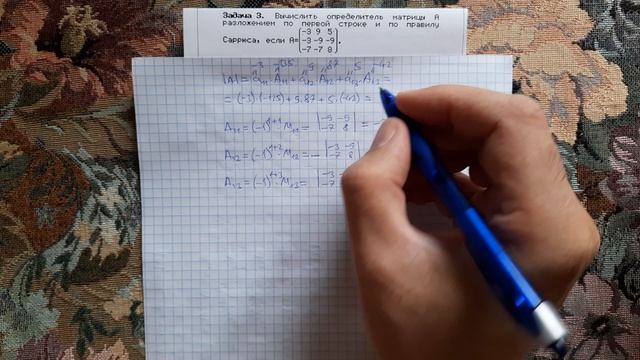 Задача 3. Вычислить определитель матрицы A
разложением по первой строке и по правилу
Саррюса, если A=(-3 9 5
-3 -9 -9
-7 -7 8).
-3 9 87 5 -42
|A| = a₁₁·A₁₁ + a₁₂·A₁₂ + a₁₃·A₁₃ =
= (-3)·(-135) + 9·87 + 5·(-42) =
A₁₁ = (-1)¹⁺¹·M₁₁ = |-9 -9
-7 8| = -
A₁₂ = (-1)¹⁺²·M₁₂ = -|-3 -9
-7 8
A₁₃ = (-1)¹⁺³·M₁₃ = |-3
-7